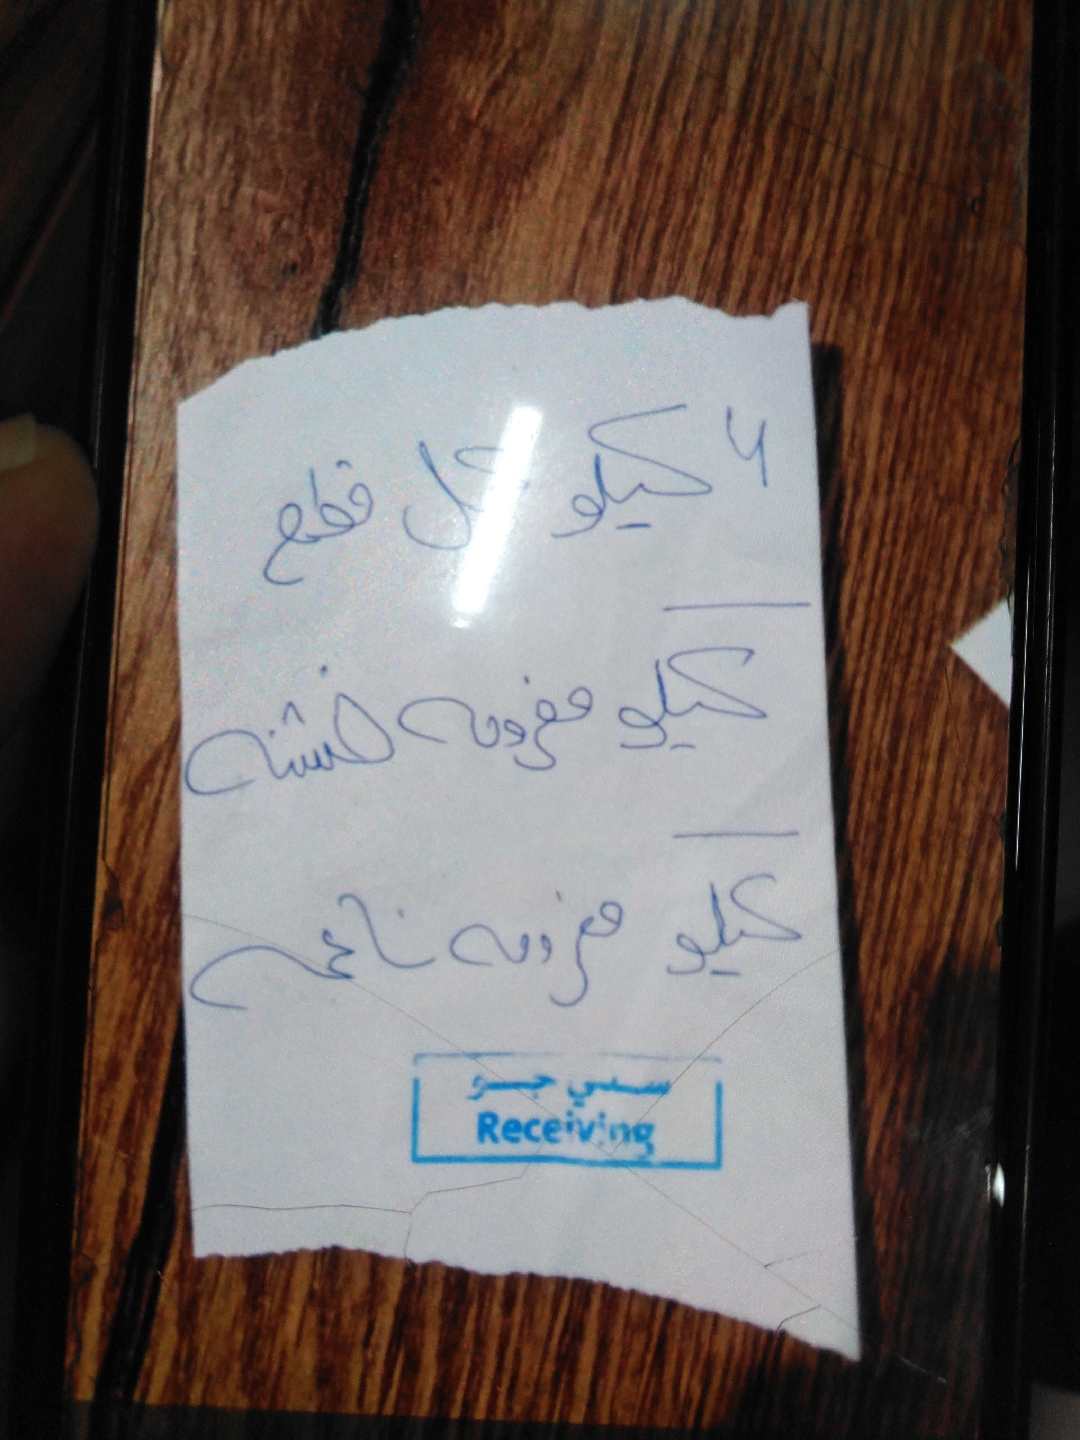 ٤ كيلو كل قطع
كيلو مفرومه خشنه
كيلو مفرومه ناعمه
سيتي جو
Receiving